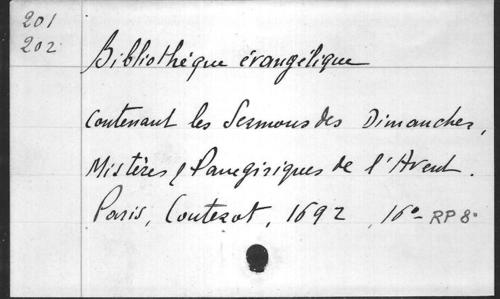 201
202
Bibliothèque évangélique
contenant les Sermons des Dimanches,
Mistères & Panegiriques de l'Avent.
Paris, Couterot, 1692, 16° RP 8°